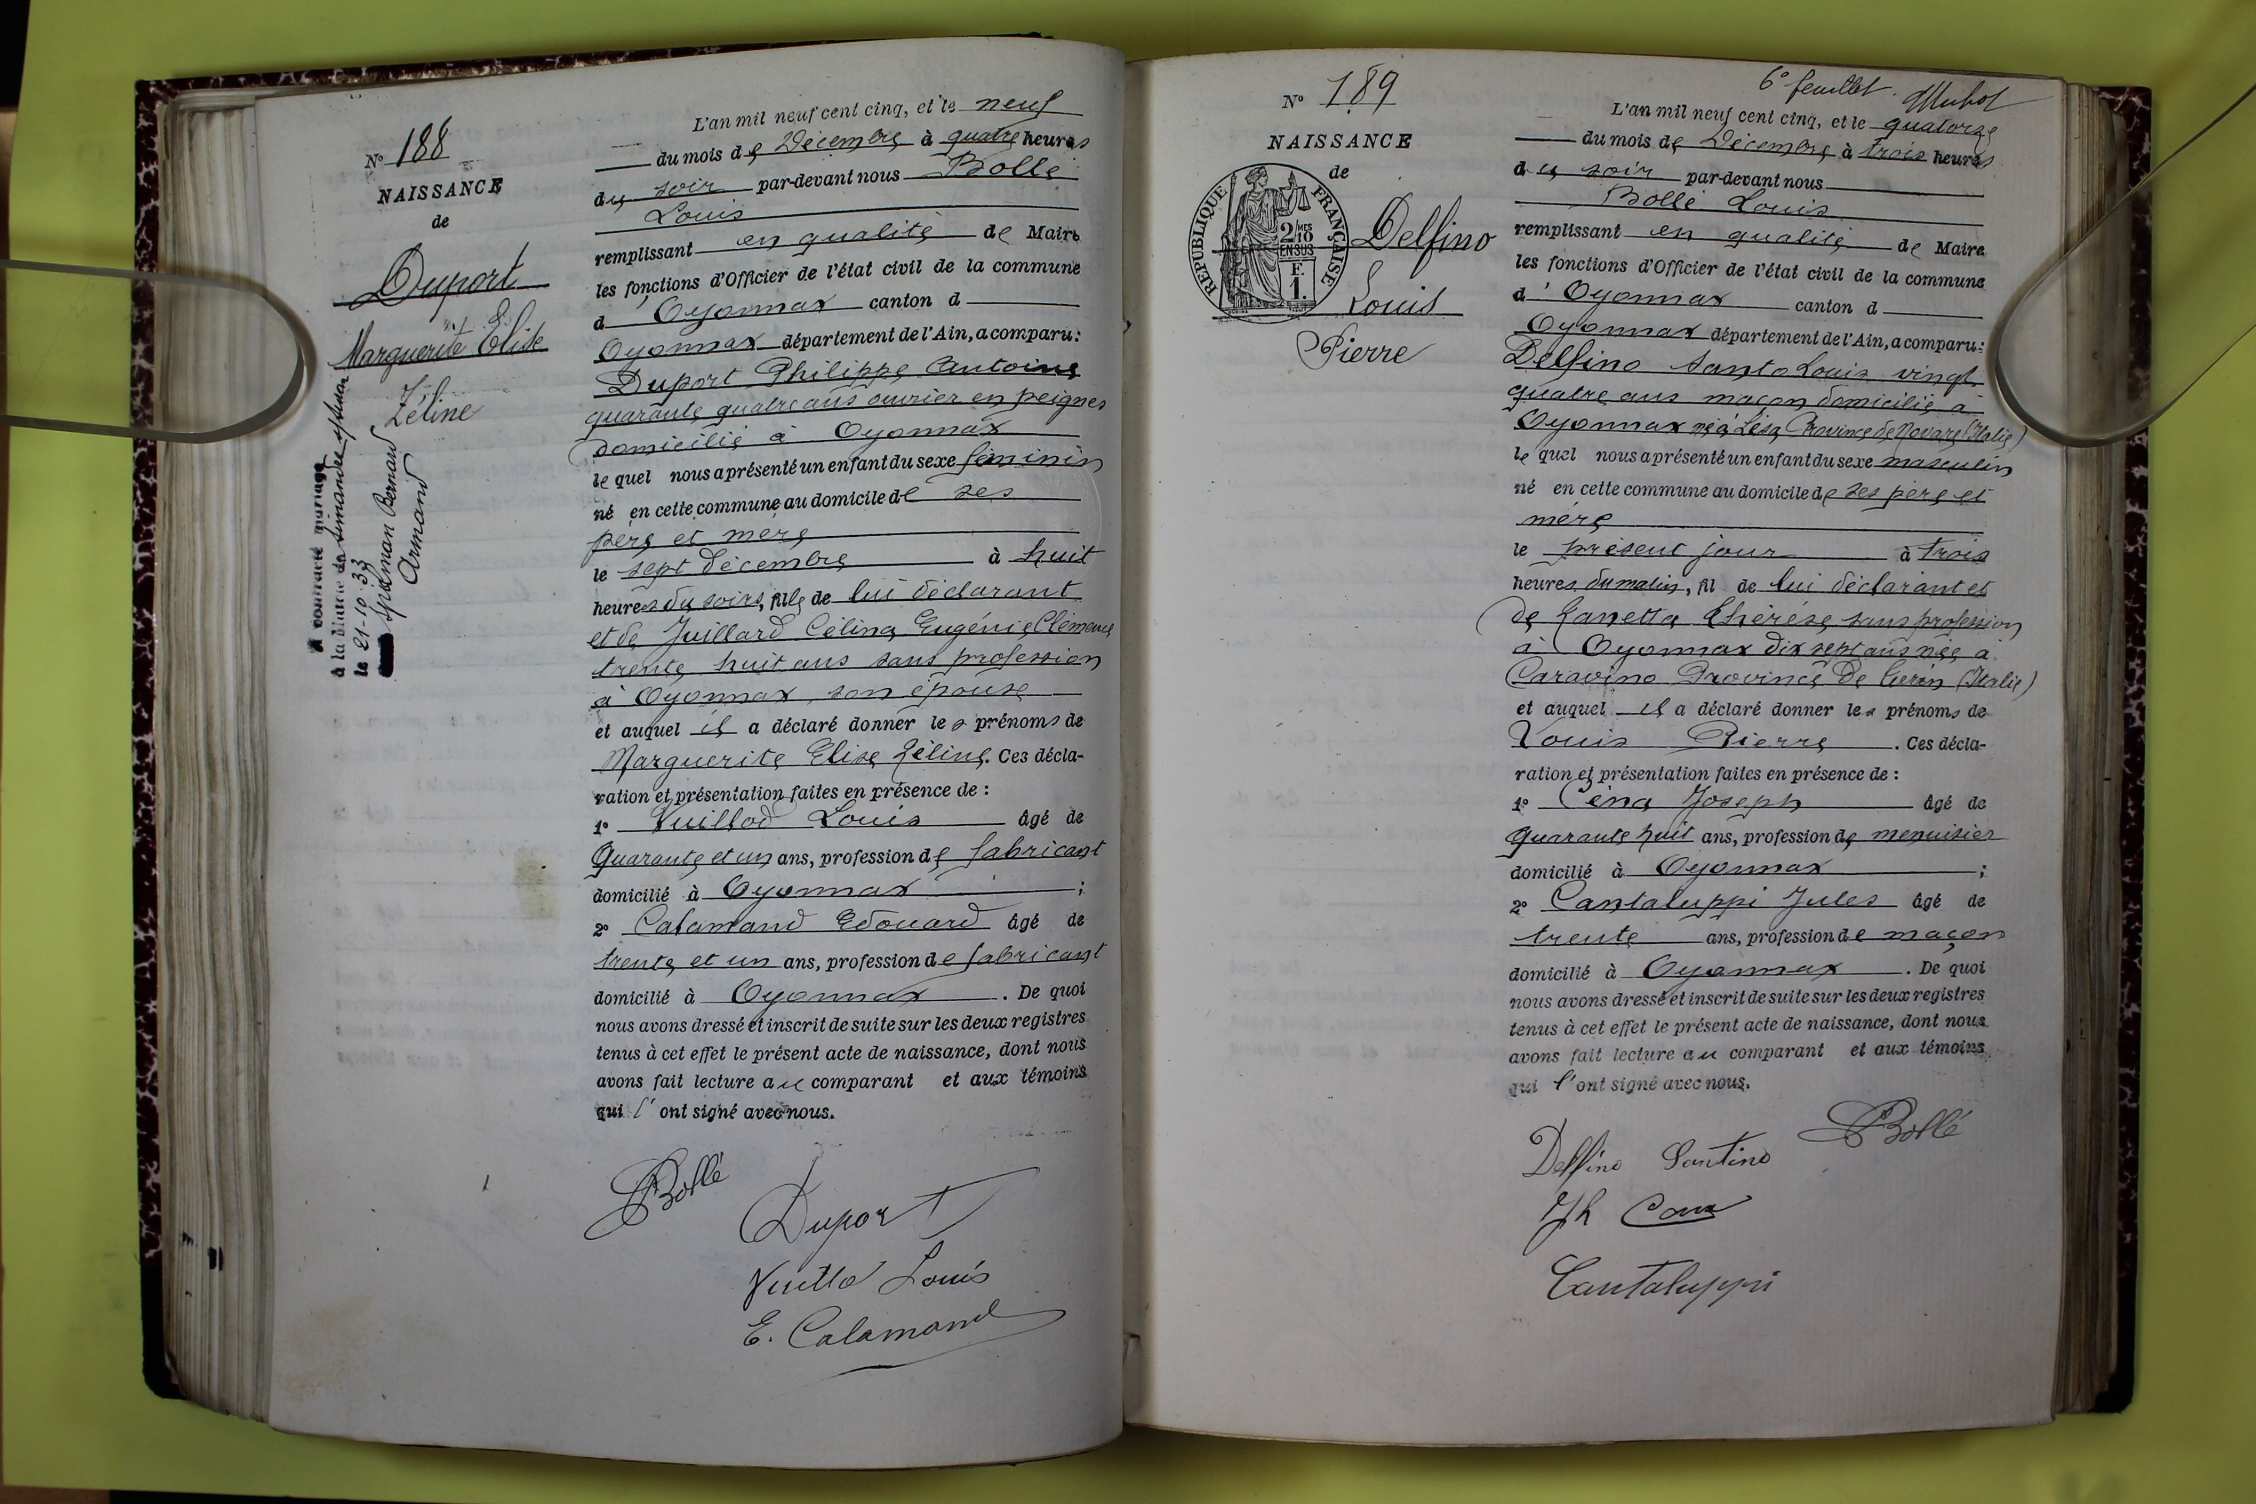 N° 188
NAISSANCE
de
Duport
Marguerite Elise
Zéline
A contracté mariage
à la Mairie de Simandre
le 21-10-33
Bernard
Armand
L'an mil neuf cent cinq, et le neuf
du mois de Décembre à quatre heures
du soir par-devant nous Bollé
Louis
remplissant en qualité de Maire
les fonctions d'Officier de l'état civil de la commune
d' Oyonnax canton d
Oyonnax département de l'Ain, a comparu:
Duport Philippe Antoine
quarante quatre ans ouvrier en peignes
domicilié à Oyonnax
le quel nous a présenté un enfant du sexe féminin
né en cette commune au domicile de ses
père et mère
le sept décembre à huit
heures du soirs, fille de lui déclarant
et de Juillard Célina Eugénie Clémence
trente huit ans sans profession
à Oyonnax son épouse
et auquel il a déclaré donner les prénoms de
Marguerite Elise Zéline. Ces décla-
ration et présentation faites en présence de :
1° Vuillod Louis âgé de
quarante et un ans, profession de fabricant
domicilié à Oyonnax ;
2° Calamand Edouard âgé de
trente et un ans, profession de fabricant
domicilié à Oyonnax . De quoi
nous avons dressé et inscrit de suite sur les deux registres
tenus à cet effet le présent acte de naissance, dont nous
avons fait lecture au comparant et aux témoins
qui l' ont signé avec nous.
Bollé
Duport
Louis
E. Calamand
6° feuillet.
N° 189
NAISSANCE
de
REPUBLIQUE FRANÇAISE
2/10 MES
EN SUS
F.
1.
Delfino
Louis
Pierre
L'an mil neuf cent cinq, et le quatorze
du mois de Décembre à trois heures
du soir par-devant nous
Bollé Louis
remplissant en qualité de Maire
les fonctions d'Officier de l'état civil de la commune
d' Oyonnax canton d
Oyonnax département de l'Ain, a comparu:
Delfino Santo Louis vingt
quatre ans maçon domicilié à
Oyonnax né à Lésa Province de Novare (Italie)
le quel nous a présenté un enfant du sexe masculin
né en cette commune au domicile de ses père et
mère
le présent jour à trois
heures du matin, fil de lui déclarant et
de Zanetta Thérèse sans profession
à Oyonnax dix sept ans née à
Caravino Province de Turin (Italie)
et auquel il a déclaré donner les prénoms de
Louis Pierre . Ces décla-
ration et présentation faites en présence de :
1° Joseph âgé de
quarante huit ans, profession de menuisier
domicilié à Oyonnax ;
2° Cantaluppi Jules âgé de
trente ans, profession de maçon
domicilié à Oyonnax . De quoi
nous avons dressé et inscrit de suite sur les deux registres
tenus à cet effet le présent acte de naissance, dont nous
avons fait lecture au comparant et aux témoins
qui l' ont signé avec nous.
Bollé
Delfino Santino
Jh
Cantaluppi